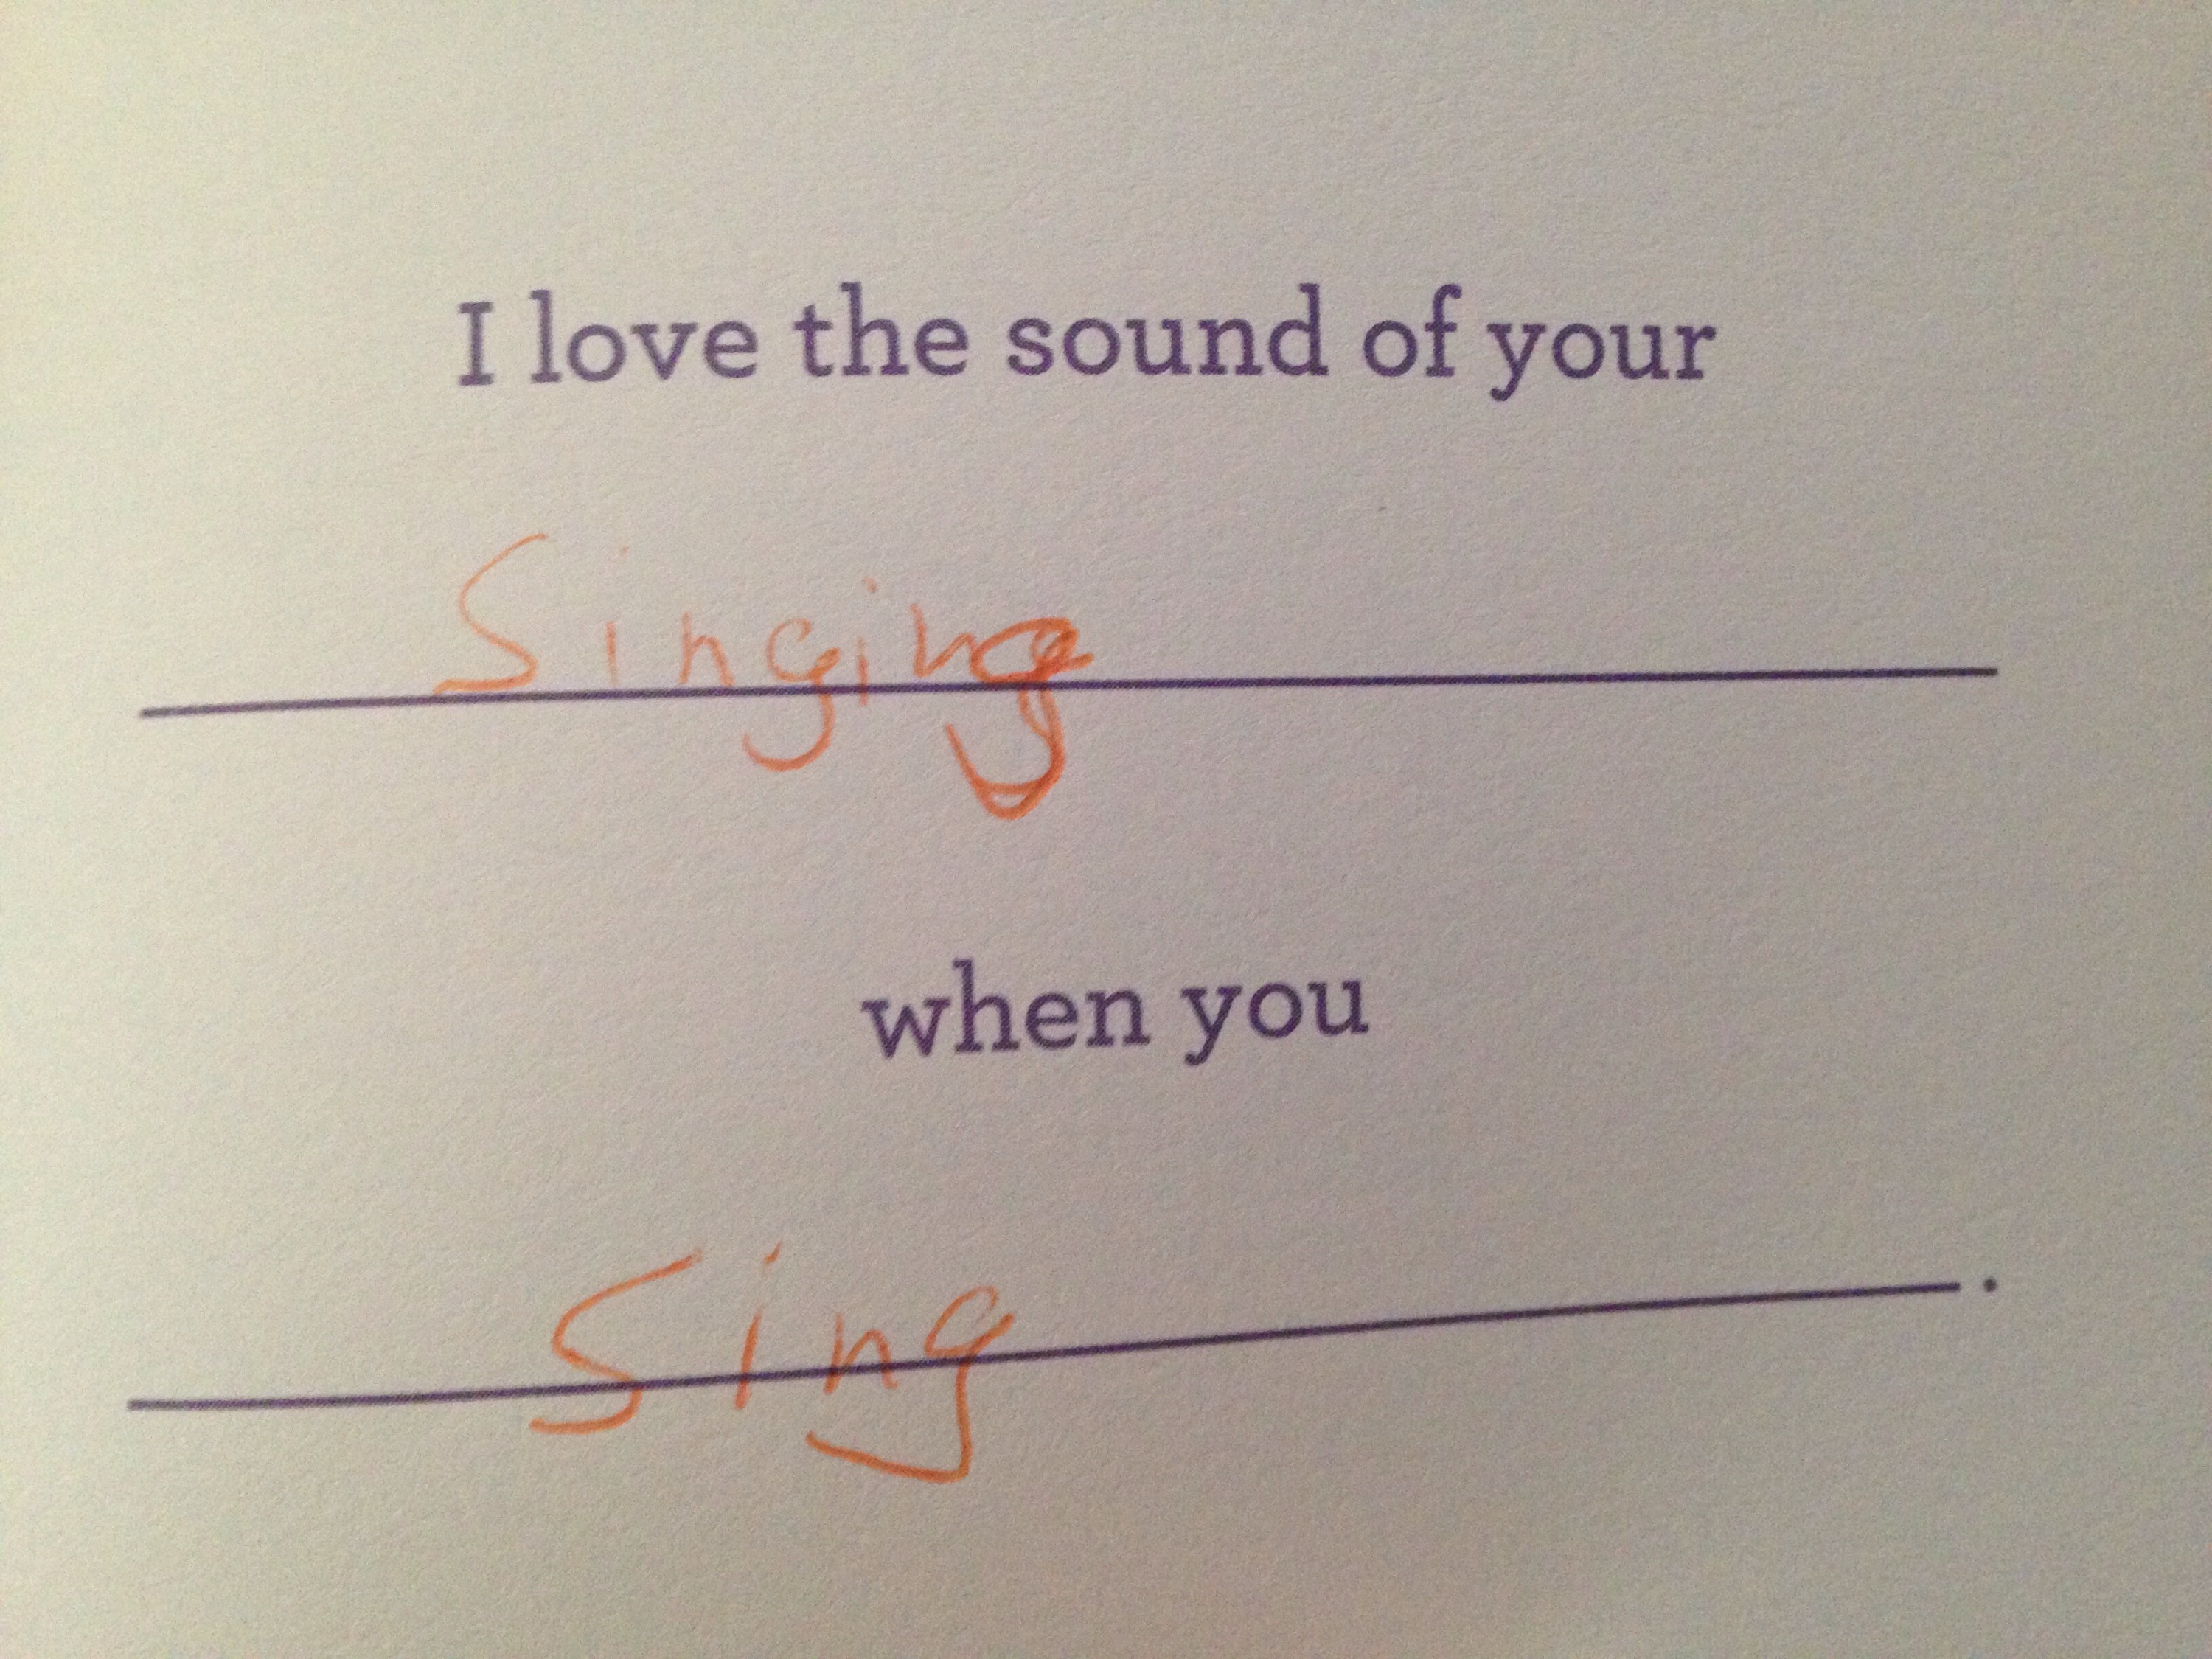 I love the sound of your
Singing
when you
Sing.